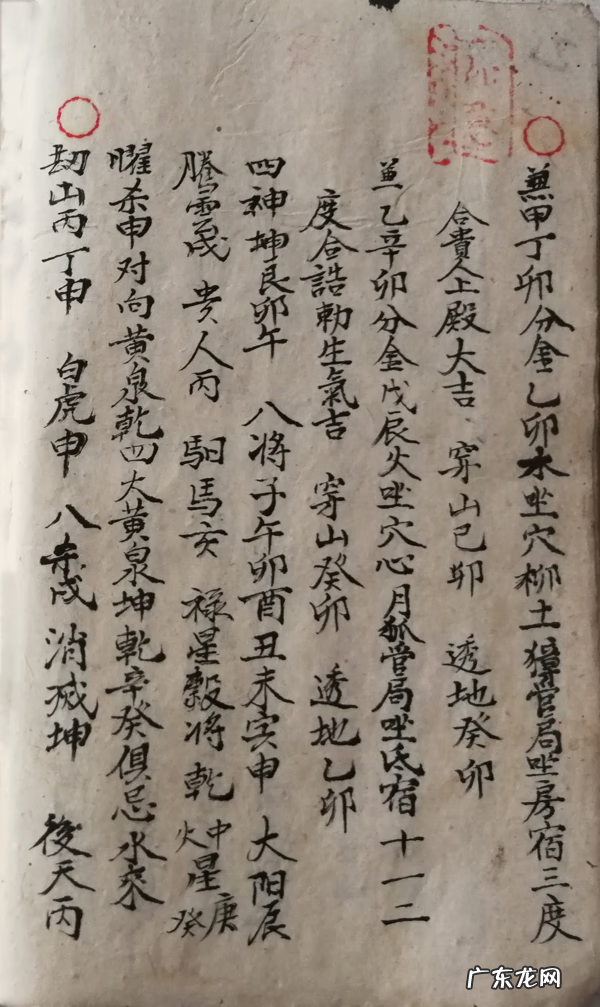 兼甲丁卯分金乙卯水坐穴柳土獐管局坐房宿三度
合貴人上殿大吉 穿山己卯 透地癸卯
兼乙辛卯分金戊辰火坐穴心月狐管局坐氐宿十一二
度合誥勅生氣吉 穿山癸卯 透地乙卯
四神坤艮卯午 八将子午卯酉丑未寅申 太阳辰
騰雲戌 贵人丙 馹馬亥 禄星殺将乾 中庚火星癸
曜杀申对向黄泉乾四大黄泉坤乾辛癸俱忌水來
刼山丙丁申 白虎申 八寺戌消滅坤 後天丙
广东龙网